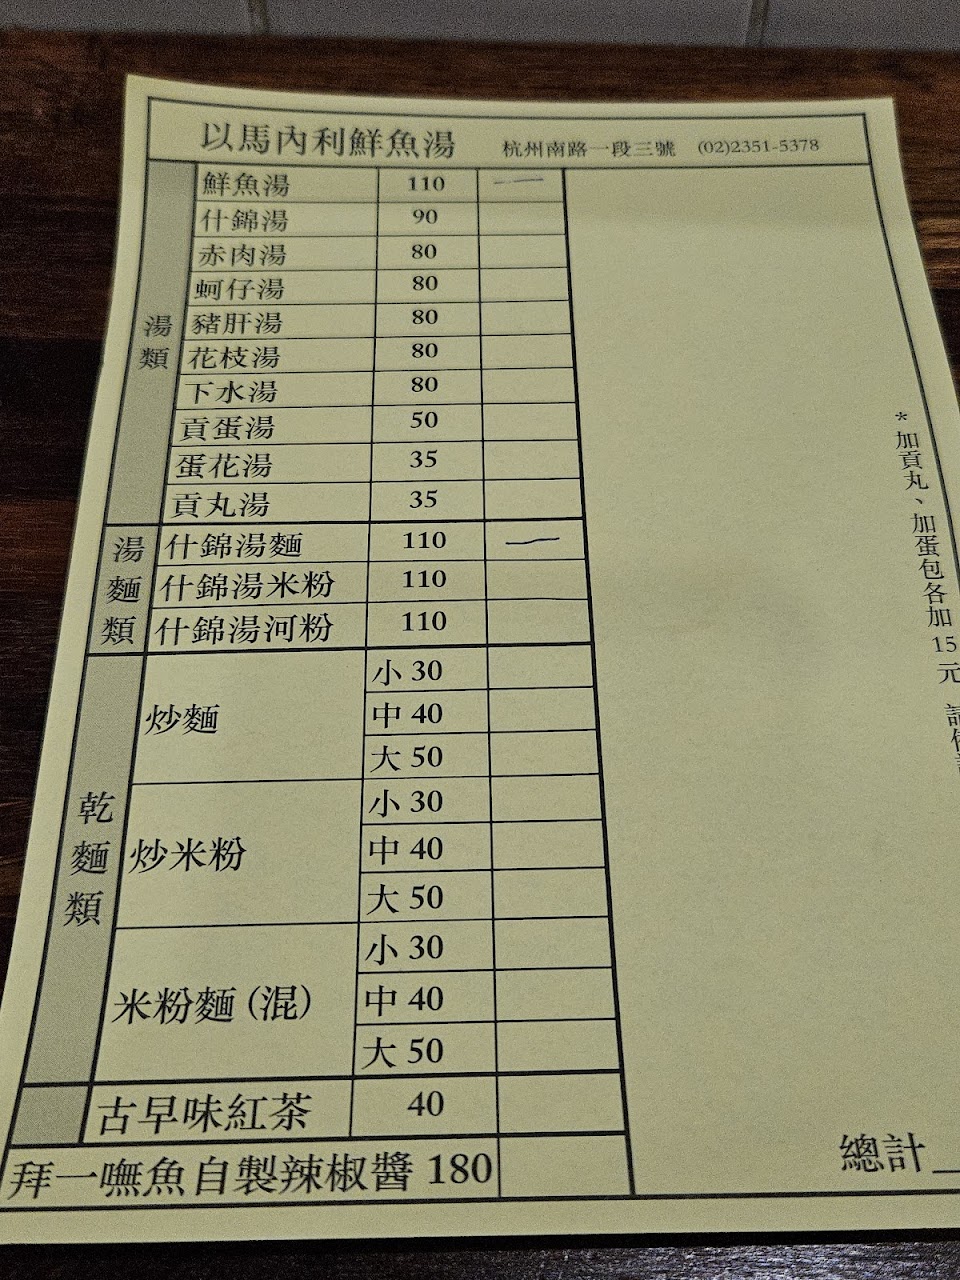 以馬內利鮮魚湯 杭州南路一段三號 (02)2351-5378
湯類
鮮魚湯 110 一
什錦湯 90
赤肉湯 80
蚵仔湯 80
豬肝湯 80
花枝湯 80
下水湯 80
貢蛋湯 50
蛋花湯 35
貢丸湯 35
湯麵類
什錦湯麵 110 一
什錦湯米粉 110
什錦湯河粉 110
乾麵類
炒麵 小 30
中 40
大 50
炒米粉 小 30
中 40
大 50
米粉麵(混) 小 30
中 40
大 50
古早味紅茶 40
拜一嘸魚自製辣椒醬 180
*加貢丸、加蛋包各加15元
總計